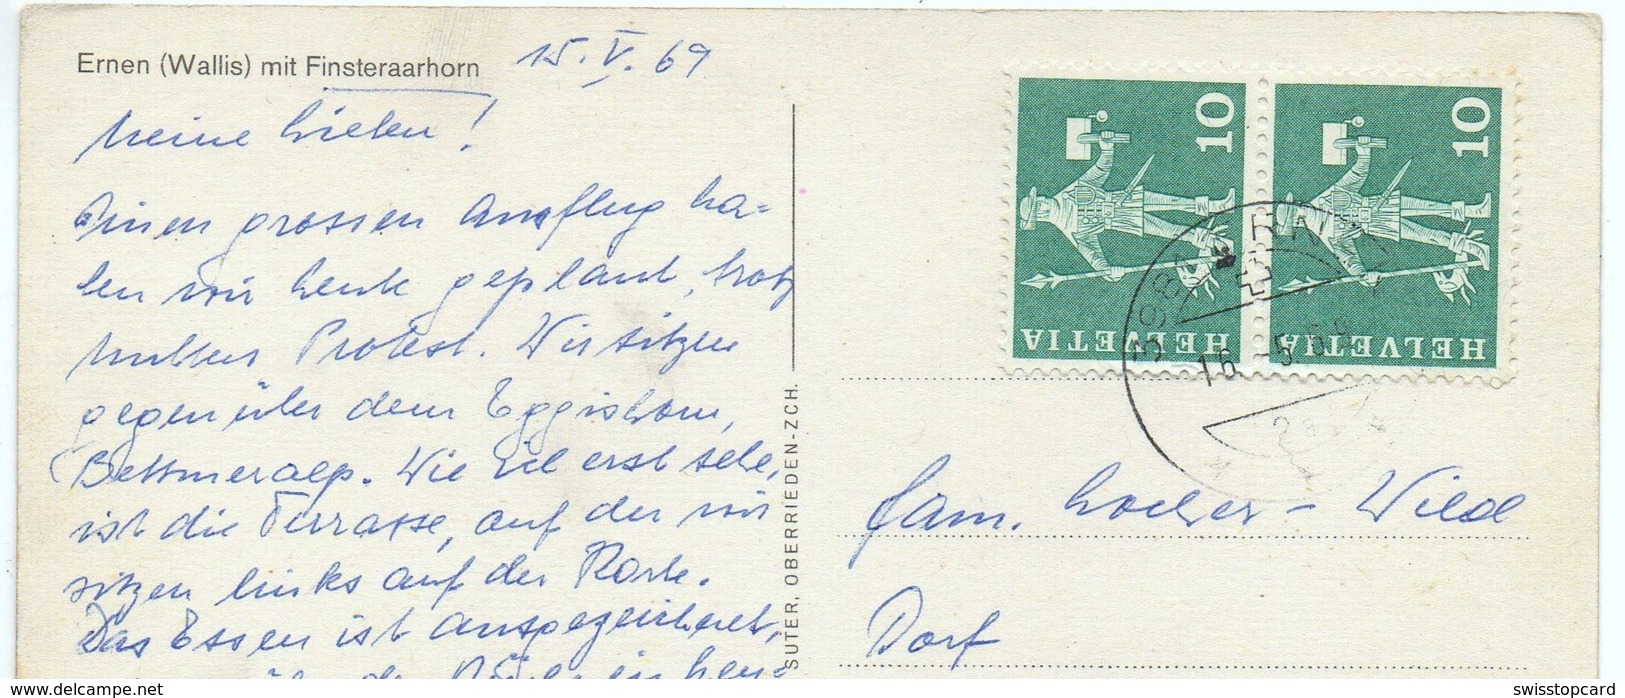 Ernen (Wallis) mit Finsteraarhorn
15. V. 69
Meine Lieben!
Einen grossen Ausflug ha=
ben wir heute geplant, trotz
Mutters Protest. Wir sitzen
gegenüber dem Eggishorn,
Bettmeralp. Wie ich erst sehe,
ist die Terrasse, auf der wir
sitzen links auf der Karte.
Das Essen ist ausgezeichnet,
SUTER, OBERRIEDEN-ZCH.
10
HELVETIA
10
HELVETIA
Fam. Locher-Wild
Dorf
www.delcampe.net
swisstopcard